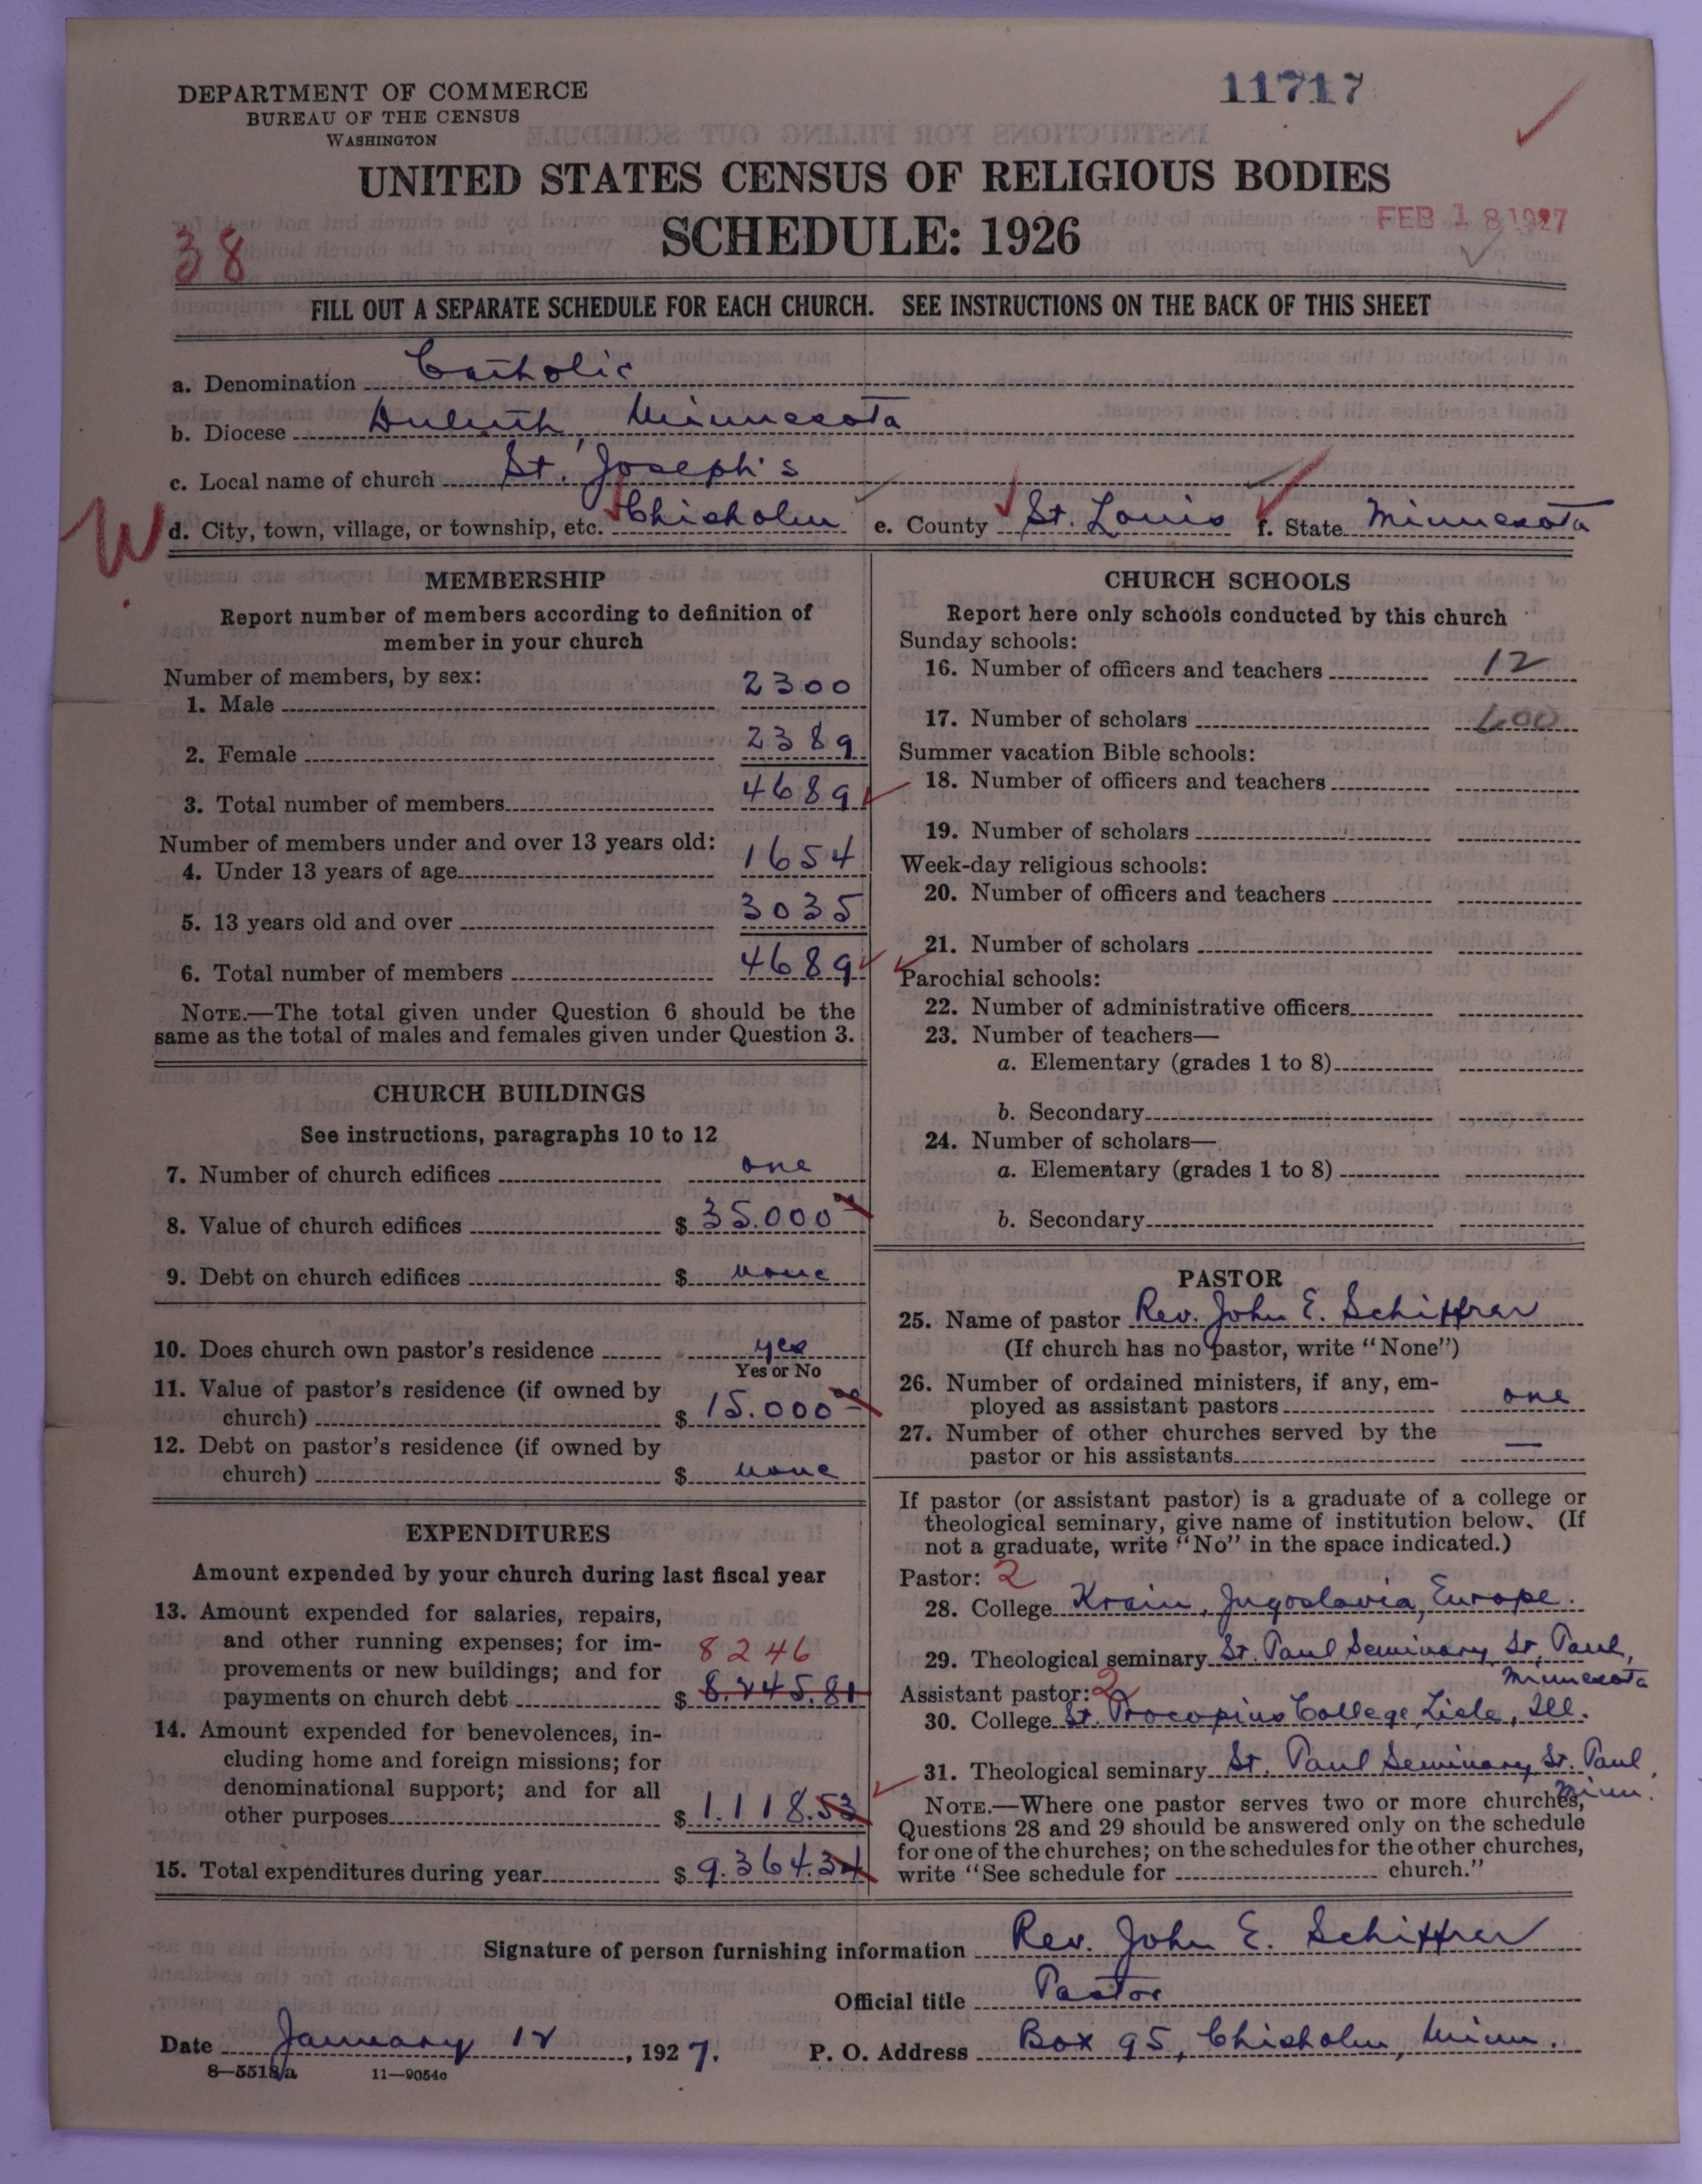 DEPARTMENT OF COMMERCE
BUREAU OF THE CENSUS
WASHINGTON
11717
UNITED STATES CENSUS OF RELIGIOUS BODIES
SCHEDULE: 1926
FEB 18 1927
38
FILL OUT A SEPARATE SCHEDULE FOR EACH CHURCH. SEE INSTRUCTIONS ON THE BACK OF THIS SHEET
a. Denomination Catholic
b. Diocese Duluth, Minnesota
c. Local name of church St. Joseph's
W d. City, town, village, or township, etc. Chisholm e. County St. Louis f. State Minnesota
MEMBERSHIP
Report number of members according to definition of
member in your church
Number of members, by sex:
1. Male 2300
2. Female 2389
3. Total number of members 4689
Number of members under and over 13 years old:
4. Under 13 years of age 1654
5. 13 years old and over 3035
6. Total number of members 4689
NOTE.—The total given under Question 6 should be the
same as the total of males and females given under Question 3.
CHURCH BUILDINGS
See instructions, paragraphs 10 to 12
7. Number of church edifices one
8. Value of church edifices $ 35.000 00
9. Debt on church edifices $ none
10. Does church own pastor's residence yes
Yes or No
11. Value of pastor's residence (if owned by
church) $ 15.000 00
12. Debt on pastor's residence (if owned by
church) $ none
EXPENDITURES
Amount expended by your church during last fiscal year
13. Amount expended for salaries, repairs,
and other running expenses; for im-
8246
provements or new buildings; and for
payments on church debt $ 8.245.81
14. Amount expended for benevolences, in-
cluding home and foreign missions; for
denominational support; and for all
other purposes $ 1.118.53
15. Total expenditures during year $ 9.364.34
CHURCH SCHOOLS
Report here only schools conducted by this church
Sunday schools:
16. Number of officers and teachers 12
17. Number of scholars 600
Summer vacation Bible schools:
18. Number of officers and teachers
19. Number of scholars
Week-day religious schools:
20. Number of officers and teachers
21. Number of scholars
Parochial schools:
22. Number of administrative officers
23. Number of teachers—
a. Elementary (grades 1 to 8)
b. Secondary
24. Number of scholars—
a. Elementary (grades 1 to 8)
b. Secondary
PASTOR
25. Name of pastor Rev. John E. Schiffrer
(If church has no pastor, write "None")
26. Number of ordained ministers, if any, em-
ployed as assistant pastors one
27. Number of other churches served by the
pastor or his assistants —
If pastor (or assistant pastor) is a graduate of a college or
theological seminary, give name of institution below. (If
not a graduate, write "No" in the space indicated.)
Pastor: 2
28. College Krain, Jugoslavia, Europe.
29. Theological seminary St. Paul Seminary, St. Paul,
Minnesota
Assistant pastor: 2
30. College St. Procopius College, Lisle, Ill.
31. Theological seminary St. Paul Seminary, St. Paul,
Minn.
NOTE.—Where one pastor serves two or more churches,
Questions 28 and 29 should be answered only on the schedule
for one of the churches; on the schedules for the other churches,
write "See schedule for church."
Signature of person furnishing information Rev. John E. Schiffrer
Official title Pastor
Date January 12, 1927. P. O. Address Box 95, Chisholm, Minn.
8—5518/a 11—9054c